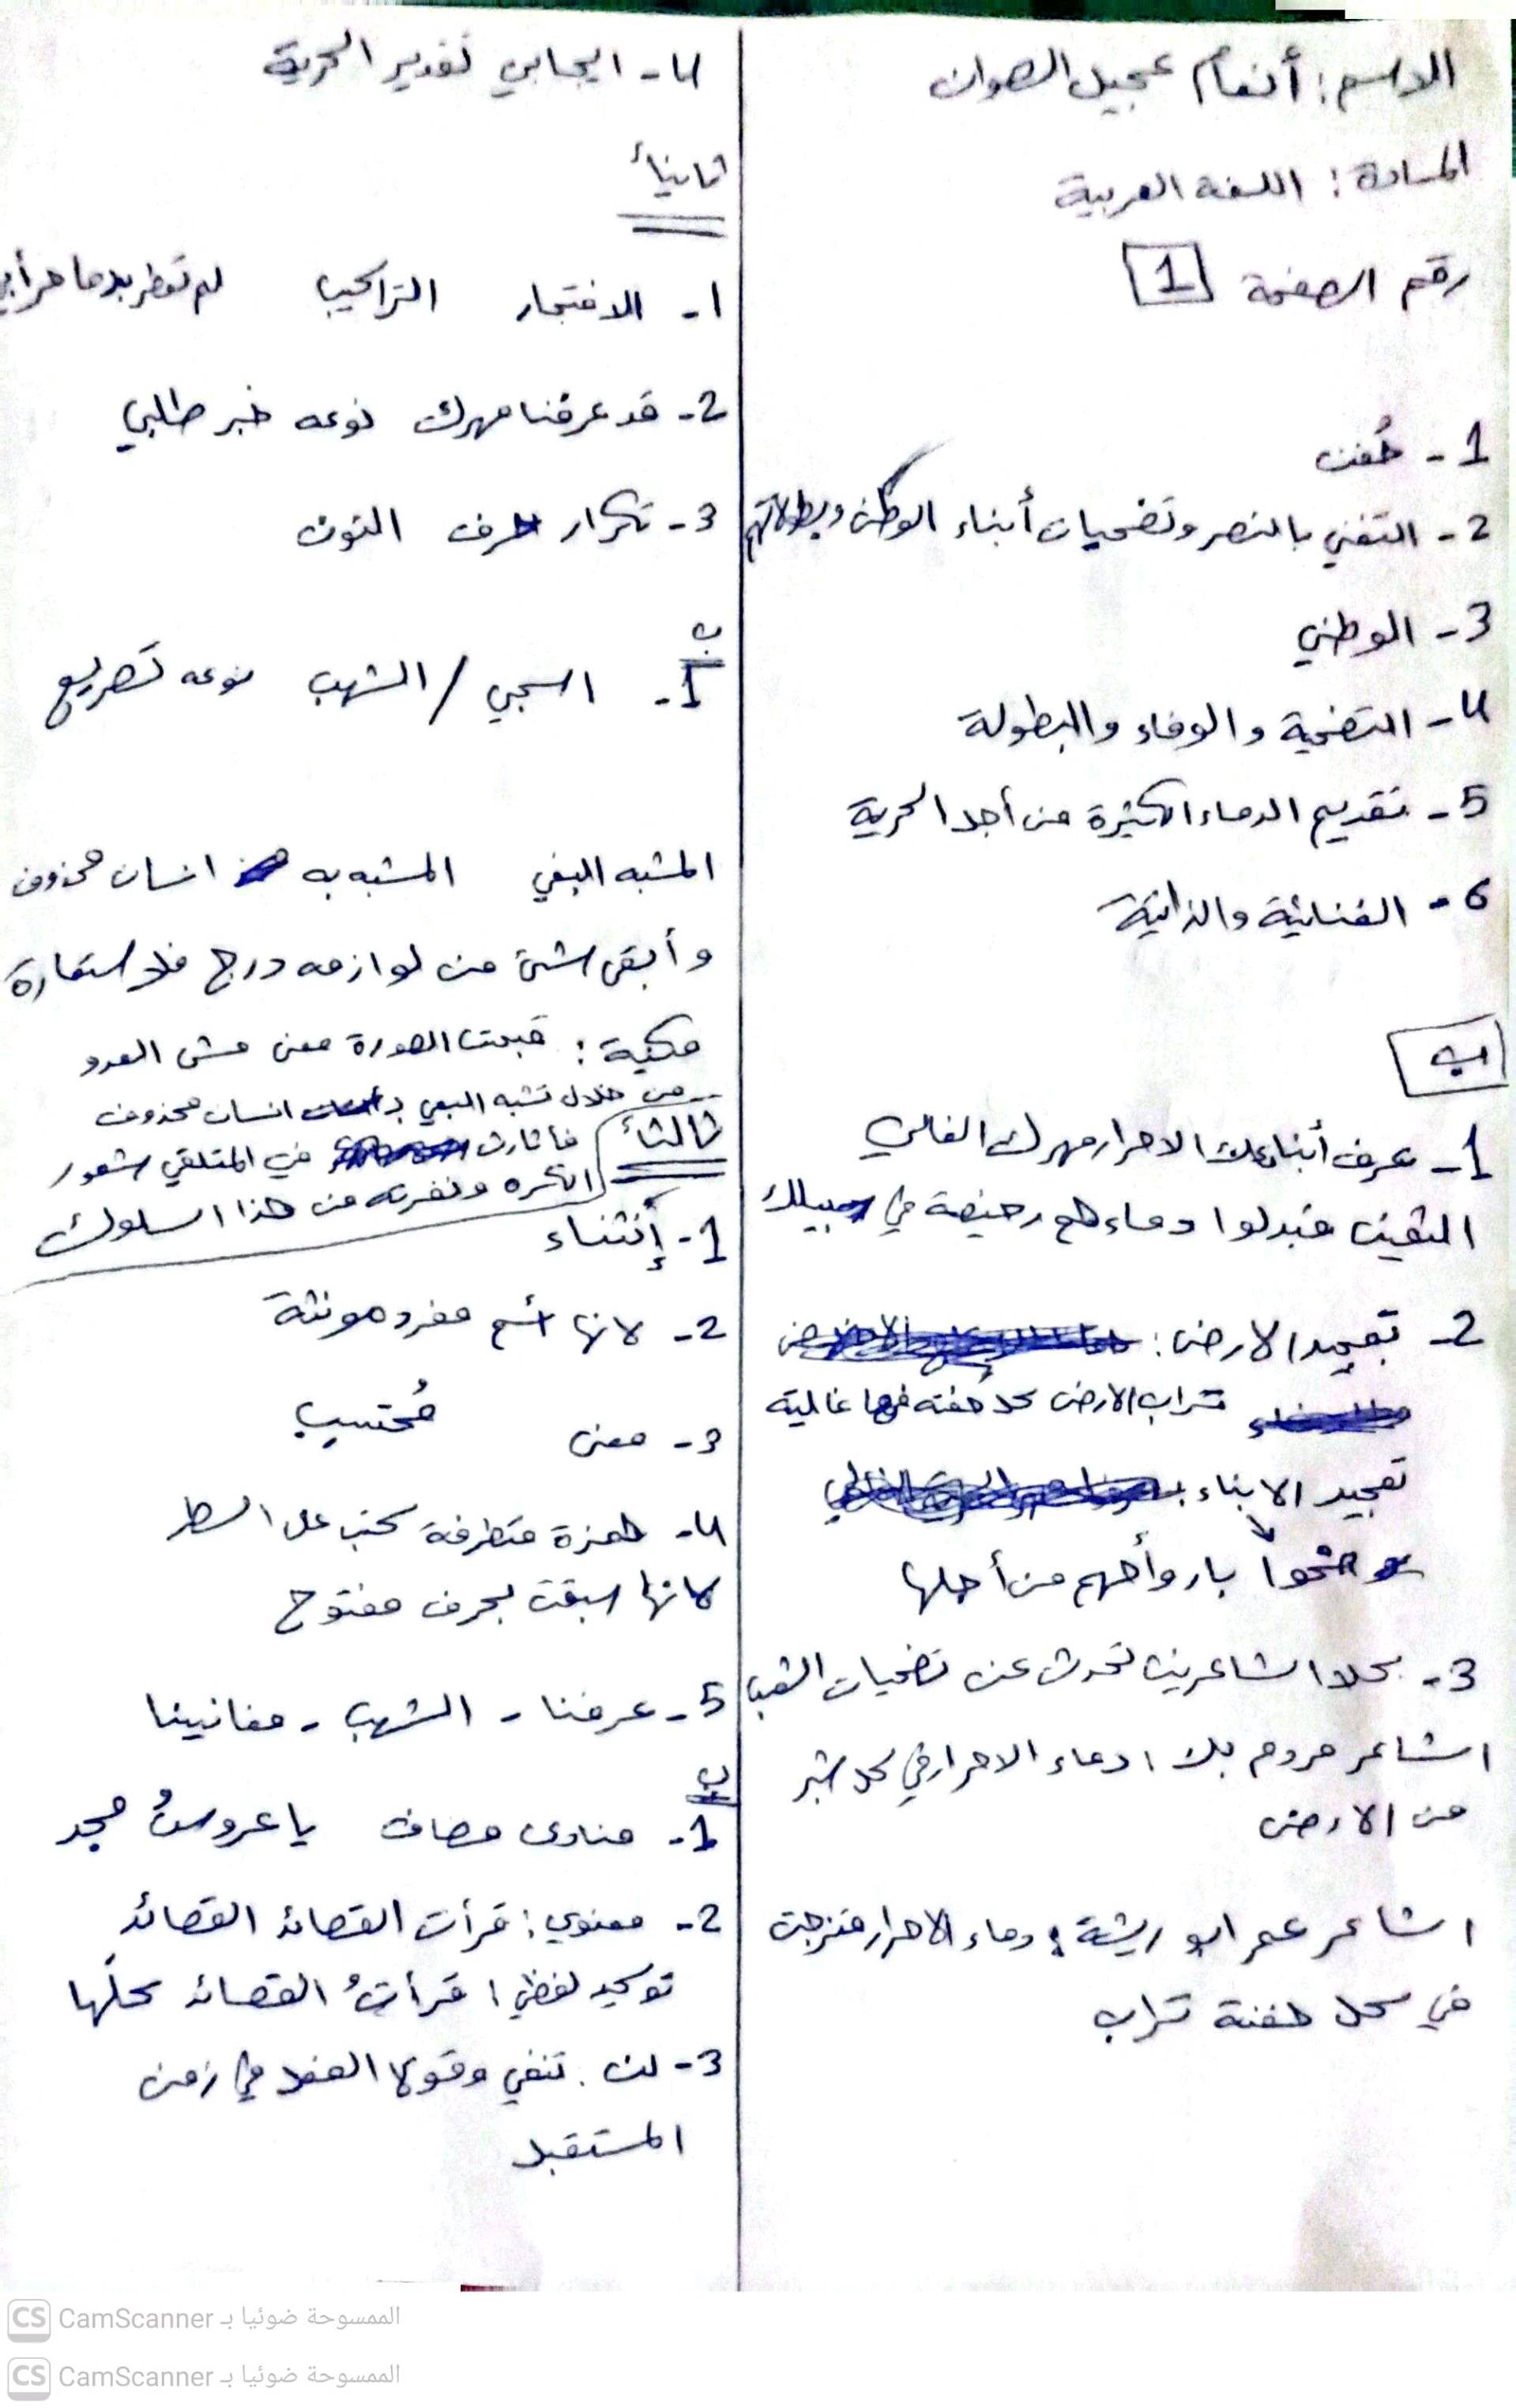 الاسم: أنغام عجيل الصوان
المادة: اللغة العربية
رقم الصفحة 1
1- حُفن
2- التغني بالنصر وتضحيات أبناء الوطن وبطولاتهم
3- الوطني
4- التضحية والوفاء والبطولة
5- تقديم الدماء الكثيرة من أجل الحرية
6- الغنائية والذاتية
ب
1- عرف أبناءك الاحرار مهرك الغالي
الثمين فبذلوا دماءهم رخيصة في سبيلك
2- تمجيد الارض:
تراب الارض كل حفنه فيها غالية
تمجيد الابناء
ضحوا بارواحهم من أجلها
3- كلا الشاعرين تحدث عن تضحيات الشعب
الشاعر مردم بك: دماء الاحرار في كل شبر
من الارض
الشاعر عمر ابو ريشة: دماء الاحرار متزجت
في كل حفنة تراب
4- ايجابي تقدير الحرية
ثانياً
1- الافتخار التراكيب لم تعطر بدما حر أبي
2- قد عرفنا مهرك نوعه خبر طلبي
3- تكرار حرف النون
ب
1- اسحبي / الشهب نوعه تصريع
المشبه البغي المشبه به انسان محذوف
وأبقى شئ من لوازمه درج فلاستعارة
مكنية: قبحت الصورة معنى العدو
من خلال تشبه البغي بـ انسان محذوف
فأثارت في المتلقي شعور
الكره ونفرته من هذا السلوك
ثالثاً
1- إنثناء
2- لانها اسم مفرد مونثة
3- معنى مُحتسب
4- همزة متطرفة كتب على السطر
لانها سبقت بحرف مفتوح
5- عرفنا - الشهب - مغانينا
ب
1- منادى مضاف يا عروسُ مجد
2- معنوي: قرأت القصائد القصائد
توكيد لفظي: قرأتُ القصائد كلّها
3- لن تنفي وقوع الفعل في زمن
المستقبل
الممسوحة ضوئيا بـ CamScanner
الممسوحة ضوئيا بـ CamScanner